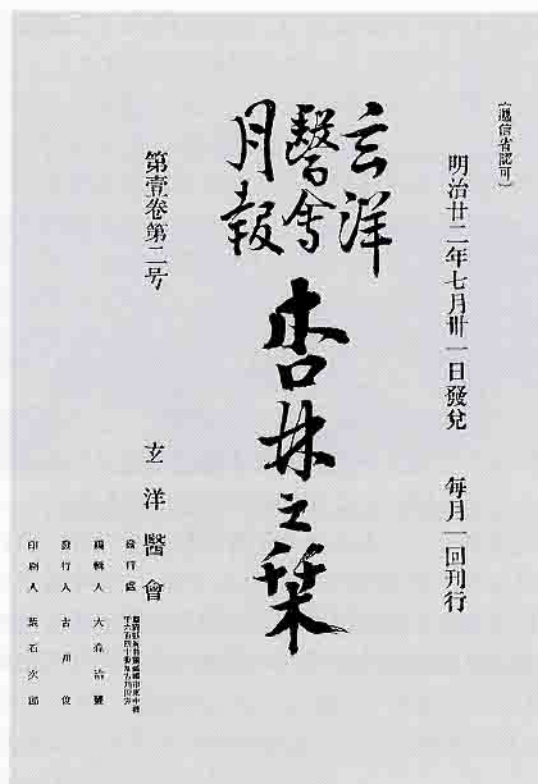 （遞信省認可）
明治廿二年七月卅一日發兌　每月一回刊行
玄洋
醫會
月報
杏林之栞
第壹卷第二号
玄洋醫會
發行處
編輯人　大森治豐
發行人　古川俊
印刷人　次郎